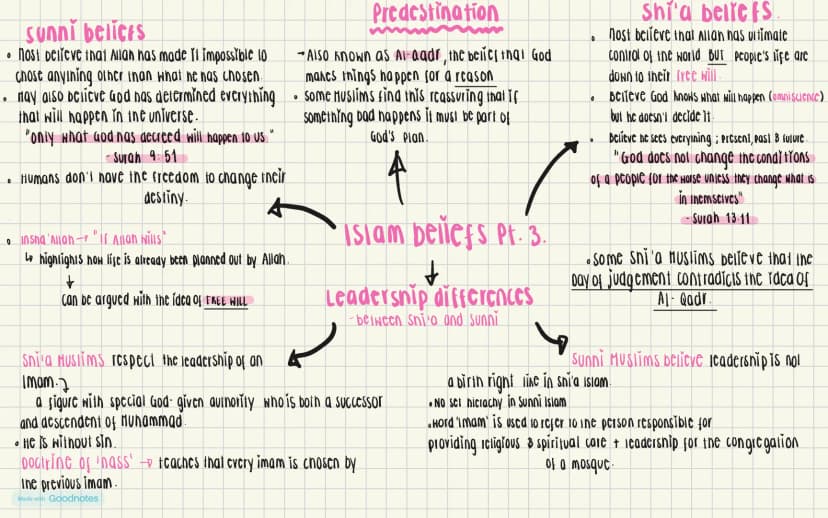 Sunni beliefs
• Most believe that Allah has made it impossible to
chose anything other than what he has chosen.
• May also believe God has determined everything
that will happen in the universe.
"only what God has decreed will happen to us"
- Surah 9:51
• Humans don't have the freedom to change their
destiny.
• insha'Allah → "If Allah wills"
↳ highlights how life is already been planned out by Allah.
↓
can be argued with the idea of FREE WILL
Predestination
→ Also known as Al-qadr, the belief that God
makes things happen for a reason
• Some Muslims find this reassuring that if
something bad happens it must be part of
God's plan.
Shi'a beliefs.
• Most believe that Allah has ultimate
control of the world BUT people's life are
down to their free will.
• Believe God knows what will happen (omniscience)
but he doesn't decide it.
• Believe he sees everything ; Present, past & future.
"God does not change the conditions
of a people for the worse unless they change what is
in themselves"
- Surah 13:11
• Some Shi'a Muslims believe that the
Day of judgement contradicts the idea of
Al-Qadr.
Islam beliefs Pt. 3.
Leadership differences
- between Shi'a and Sunni
Shi'a Muslims respect the leadership of an
Imam.
a figure with special God-given authority who is both a successor
and descendent of Muhammad.
• He is without sin.
Doctrine of 'nass' → teaches that every imam is chosen by
the previous imam.
Sunni Muslims believe leadership is not
a birth right like in Shi'a Islam.
• No set hierachy in Sunni Islam
• Word 'imam' is used to refer to the person responsible for
providing religious & spiritual care + leadership for the congregation
of a mosque.
Made with Goodnotes